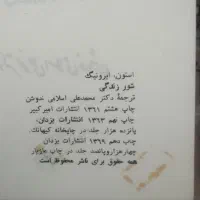 استون، ایرونیگ
شور زندگی
ترجمهٔ دکتر محمدعلی اسلامی ندوشن
چاپ هشتم ۱۳۶۱ انتشارات امیرکبیر
چاپ نهم ۱۳۶۳ انتشارات یزدان،
پانزده هزار جلد در چاپخانه کیهانک
چاپ دهم ۱۳۶۹ انتشارات یزدان
چهارهزاروپانصد جلد در چاپ
همه حقوق برای ناشر محفوظ است